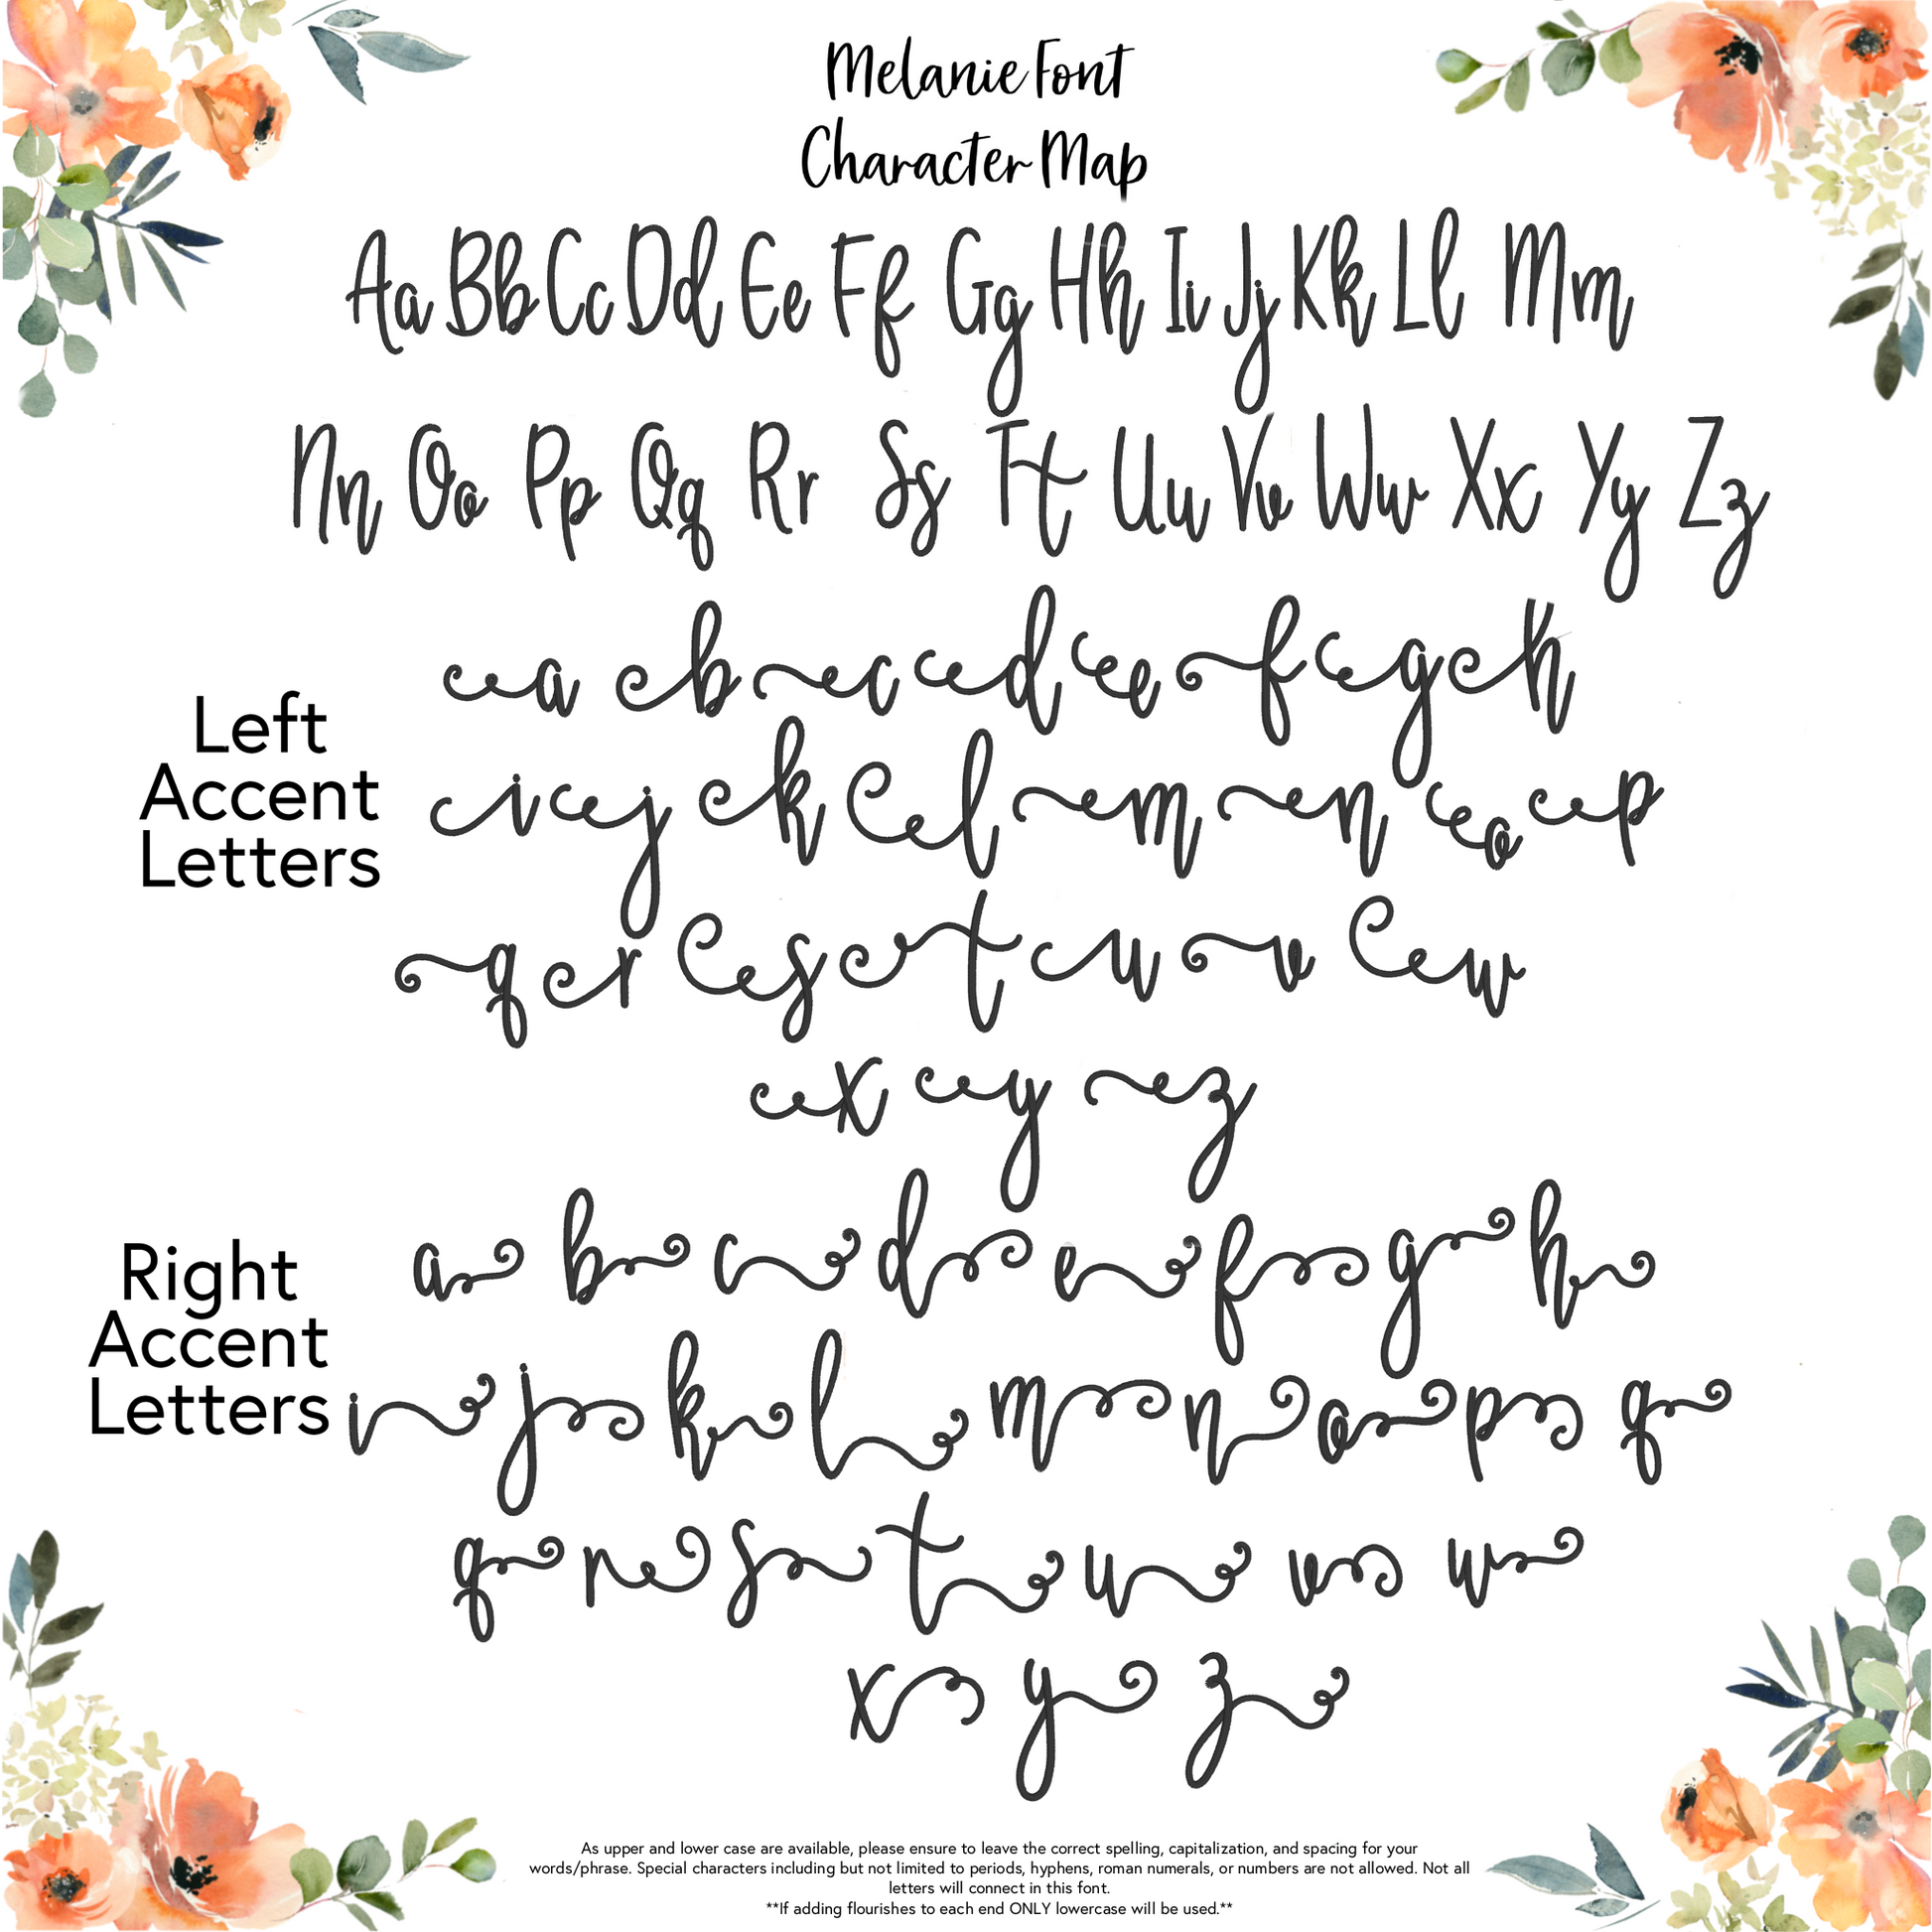 Melanie Font
Character Map
Aa Bb Cc Dd Ee Ff Gg Hh Ii Jj Kk Ll Mm
Nn Oo Pp Qq Rr Ss Tt Uu Vv Ww Xx Yy Zz
Left
Accent
Letters
a b c d e f g h
i j k l m n o p
q r s t u v w
x y z
Right
Accent
Letters
a b c d e f g h
i j k l m n o p q
q r s t u v w
x y z
As upper and lower case are available, please ensure to leave the correct spelling, capitalization, and spacing for your
words/phrase. Special characters including but not limited to periods, hyphens, roman numerals, or numbers are not allowed. Not all
letters will connect in this font.
**If adding flourishes to each end ONLY lowercase will be used.**